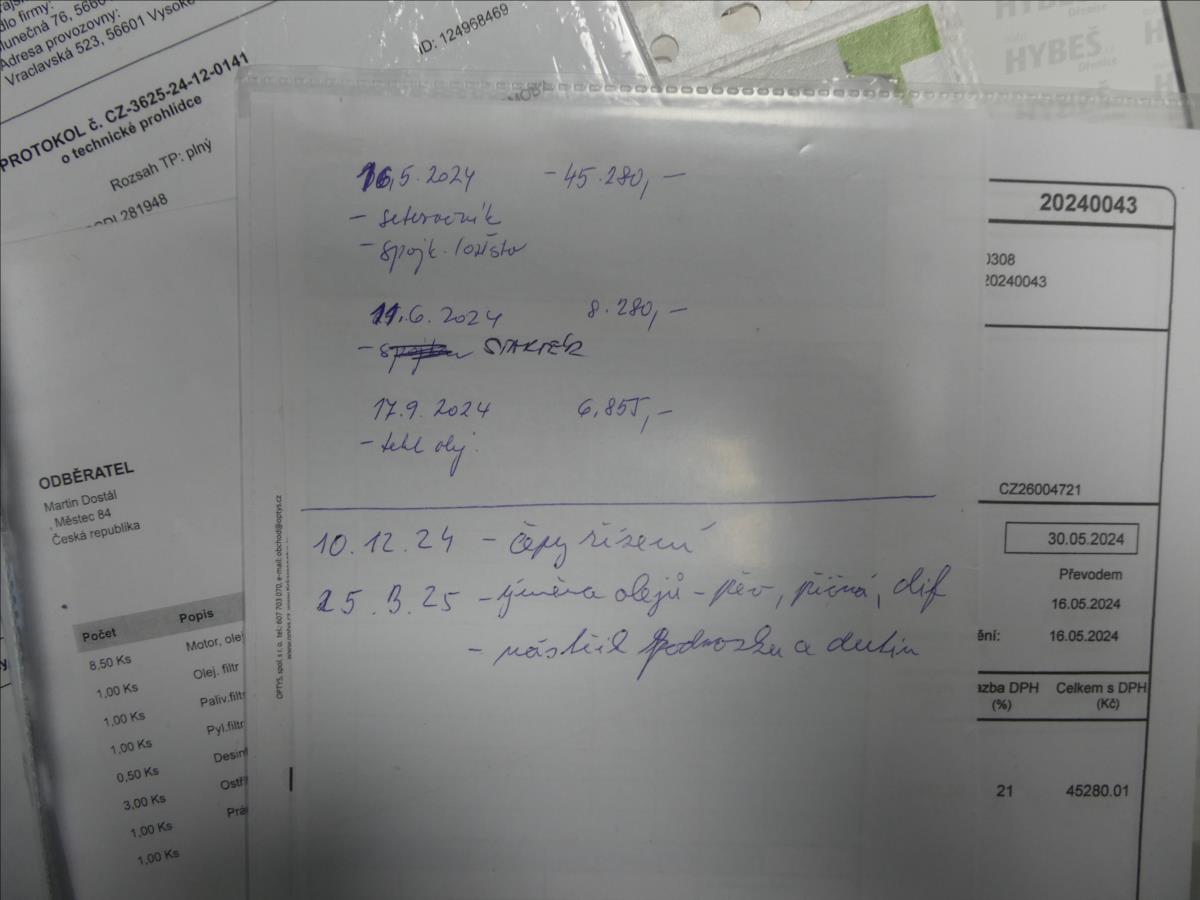 dlo firmy:
lunečná 76, 5660
Adresa provozovny:
Vraclavská 523, 56601 Vysoké
PROTOKOL č. CZ-3625-24-12-0141
o technické prohlídce
Rozsah TP: plný
281948
ID: 124968469
HYBEŠ
16.5.2024 - 45.280,-
- setrvačník
- spojk. ložisko
11.6.2024 8.280,-
- STARTÉR
17.9.2024 6.855,-
- olej.
10.12.24 - čepy řízení
25.3.25 - výměna olejů - přev, příčná, dif
- nástřik podvozku a dutin
OPTYS, spol. s r. o. tel.: 607 703 070, e-mail: obchod@optys.cz
ODBĚRATEL
Martin Dostál
, Městec 84
Česká republika
Počet Popis
8,50 Ks Motor, ole
1,00 Ks Olej. filtr
1,00 Ks Paliv.filtr
1,00 Ks Pyl.filtr
0,50 Ks Desinf
3,00 Ks Ostři
1,00 Ks Prá
1,00 Ks
20240043
0308
20240043
CZ26004721
30.05.2024
Převodem
16.05.2024
ění: 16.05.2024
azba DPH Celkem s DPH
(%) (Kč)
21 45280.01